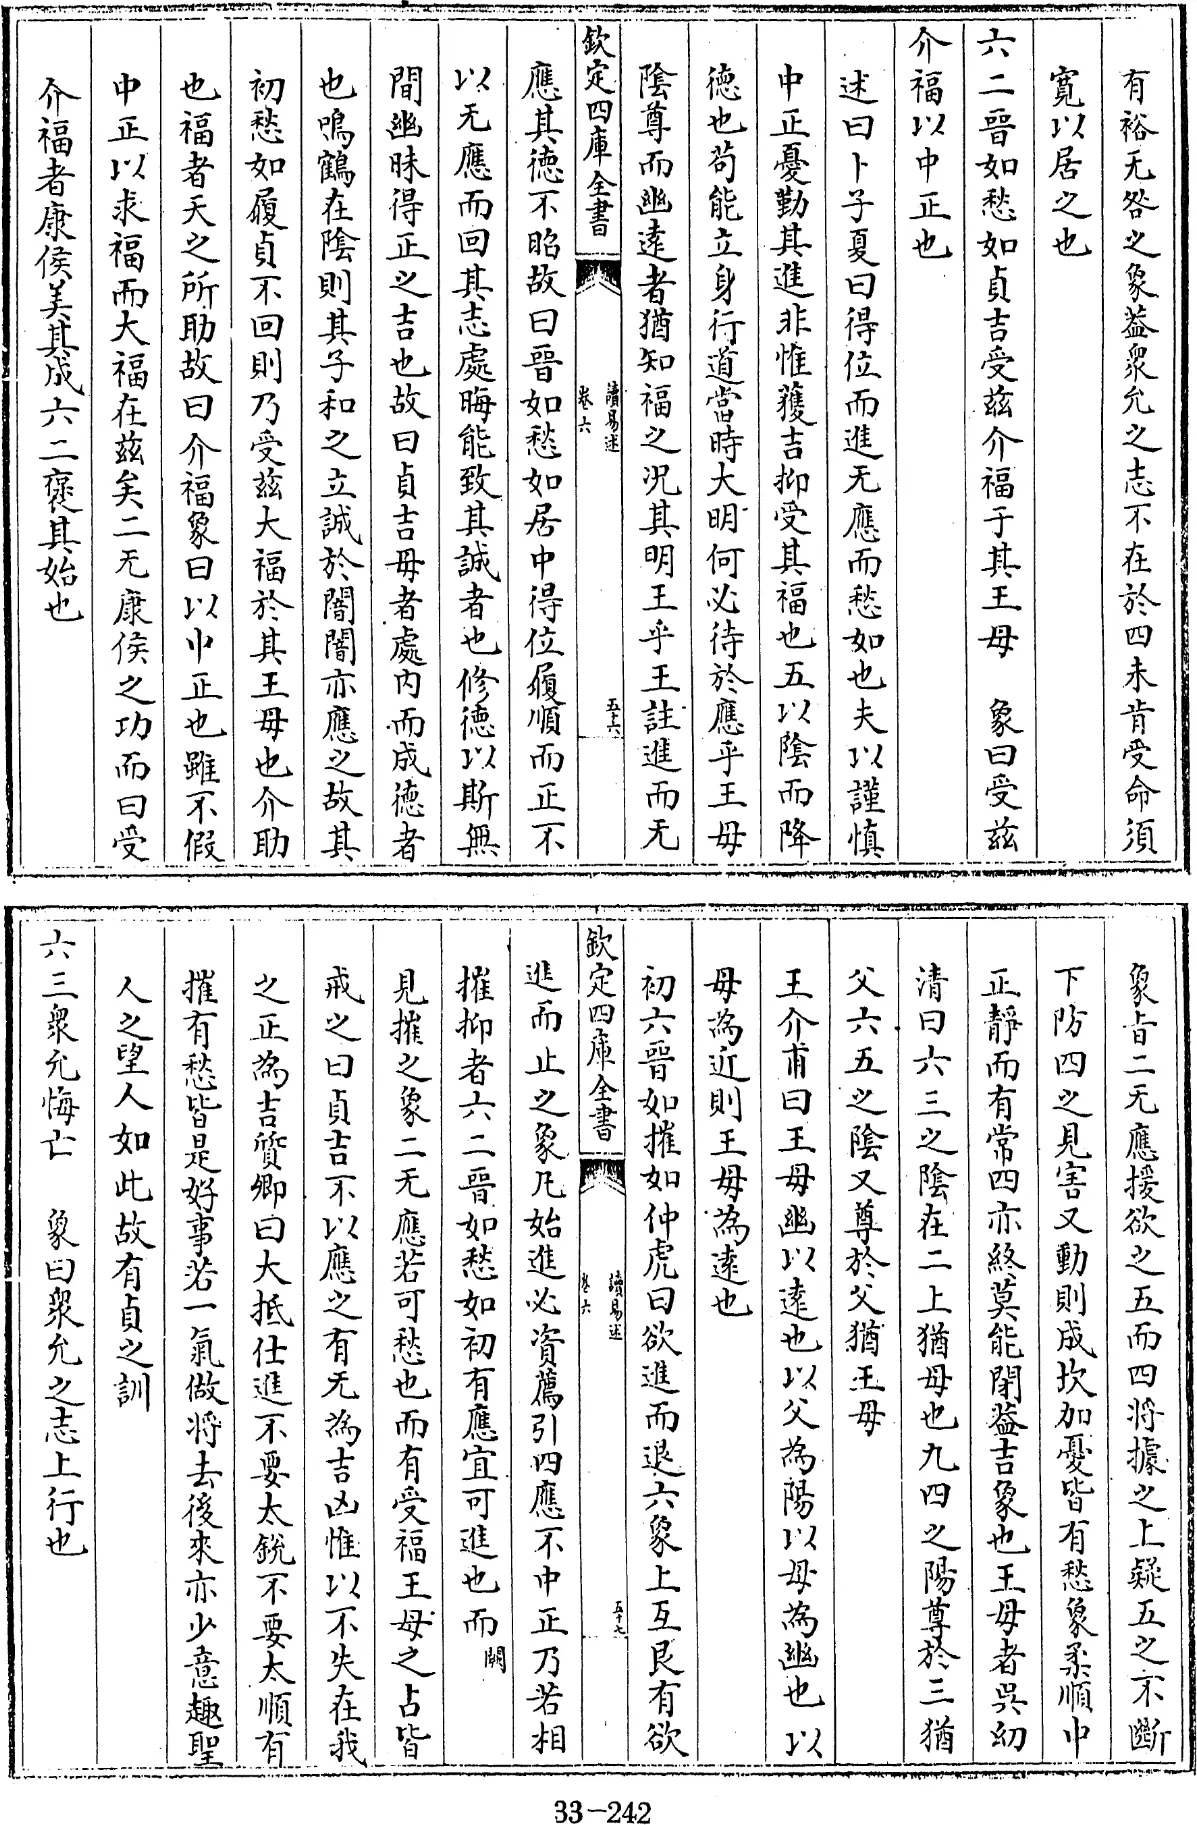 有裕无咎之象葢衆允之志不在於四未肯受命須
寛以居之也
六二晉如愁如貞吉受兹介福于其王母　象曰受兹
介福以中正也
述曰卜子夏曰得位而進无應而愁如也夫以謹慎
中正憂勤其進非惟獲吉抑受其福也五以陰而降
德也茍能立身行道當時大明何必待於應乎王母
隂尊而幽逺者猶知福之况其明王乎王註進而无
欽定四庫全書
讀易述
卷六
五十六
應其德不昭故曰晉如愁如居中得位履順而正不
以无應而回其志處晦能致其誠者也修德以斯無
間幽昧得正之吉也故曰貞吉母者處内而成德者
也鳴鶴在陰則其子和之立誠於闇闇亦應之故其
初愁如履貞不回則乃受兹大福於其王母也介助
也福者天之所助故曰介福象曰以中正也雖不假
中正以求福而大福在兹矣二无康侯之功而曰受
介福者康侯美其成六二褒其始也
象旨二无應援欲之五而四将據之上疑五之不斷
下防四之見害又動則成坎加憂皆有愁象柔順中
正靜而有常四亦終莫能閉葢吉象也王母者呉幼
清曰六三之陰在二上猶母也九四之陽尊於三猶
父六五之陰又尊於父猶王母
王介甫曰王母幽以逺也以父為陽以母為幽也以
母為近則王母為逺也
初六晉如摧如仲虎曰欲進而退六象上互艮有欲
欽定四庫全書
讀易述
卷六
五十七
進而止之象凡始進必資薦引四應不中正乃若相
摧抑者六二晉如愁如初有應宜可進也而闕
見摧之象二无應若可愁也而有受福王母之占皆
戒之曰貞吉不以應之有无為吉凶惟以不失在我
之正為吉質卿曰大抵仕進不要太銳不要太順有
摧有愁皆是好事若一氣做将去後來亦少意趣聖
人之望人如此故有貞之訓
六三衆允悔亡　象曰衆允之志上行也
33-242